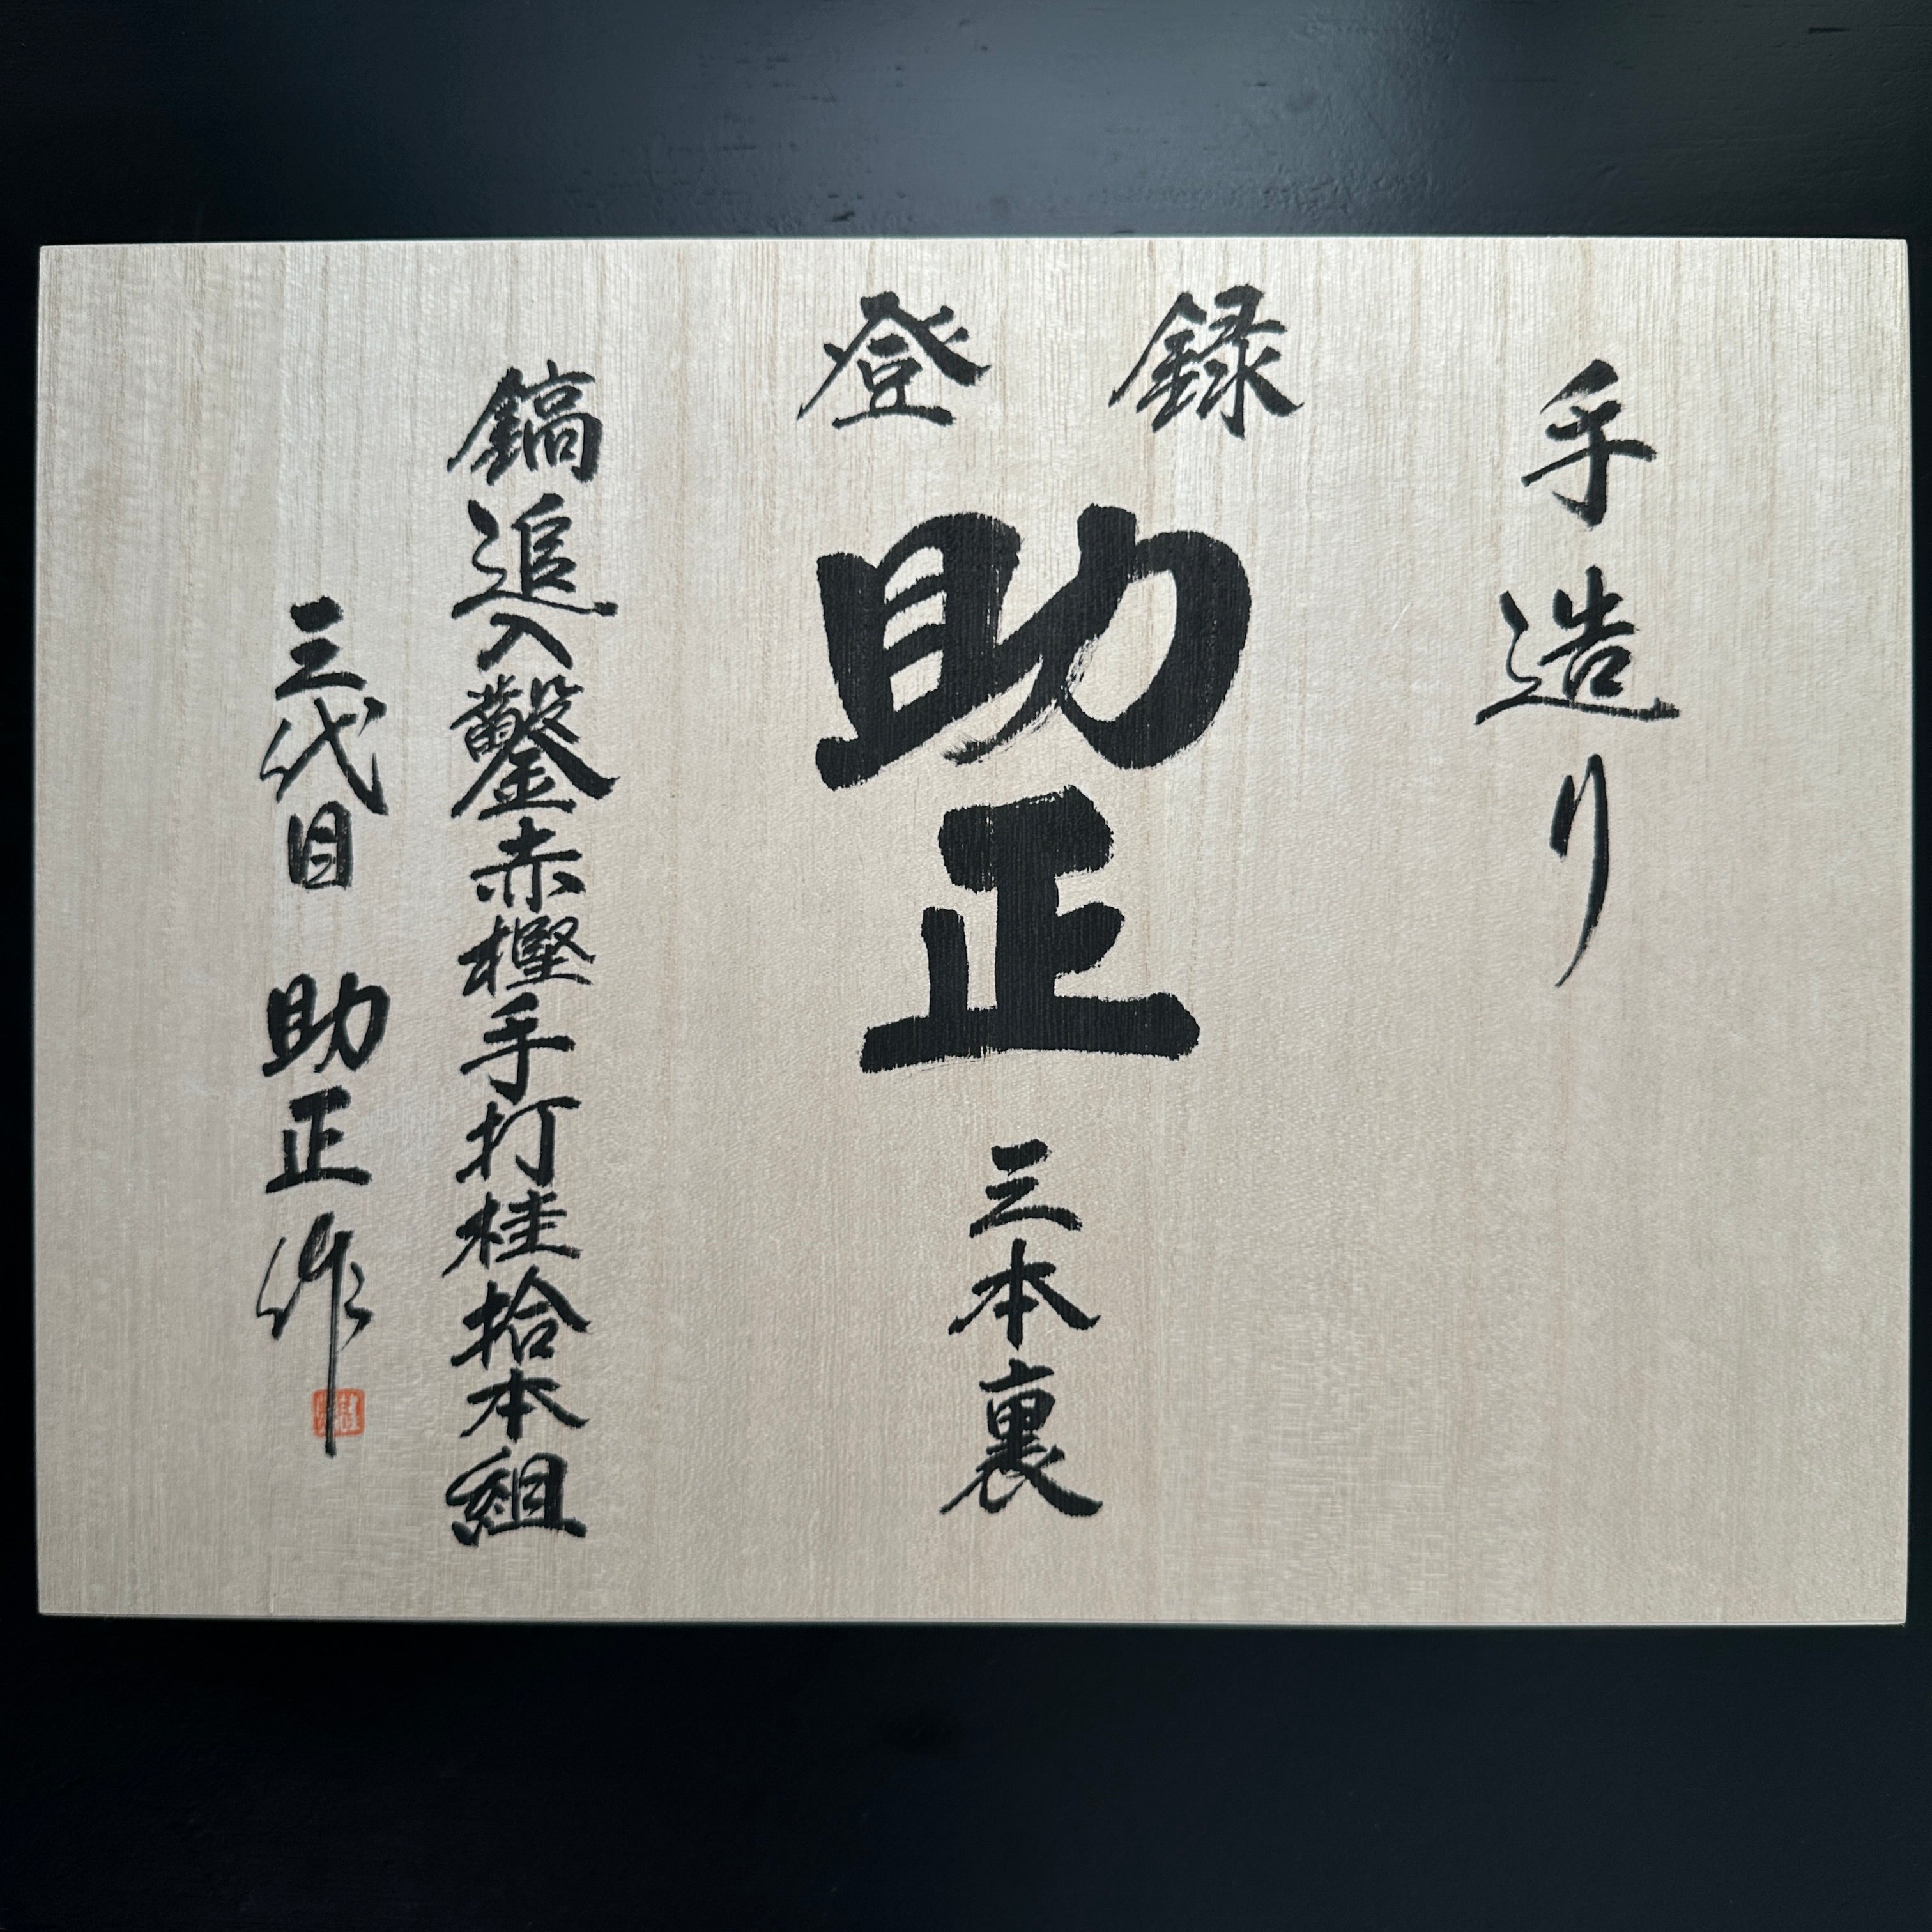 手造り
登録
助正
三本裏
鎬追入鑿赤樫手打桂拾本組
三代目 助正作